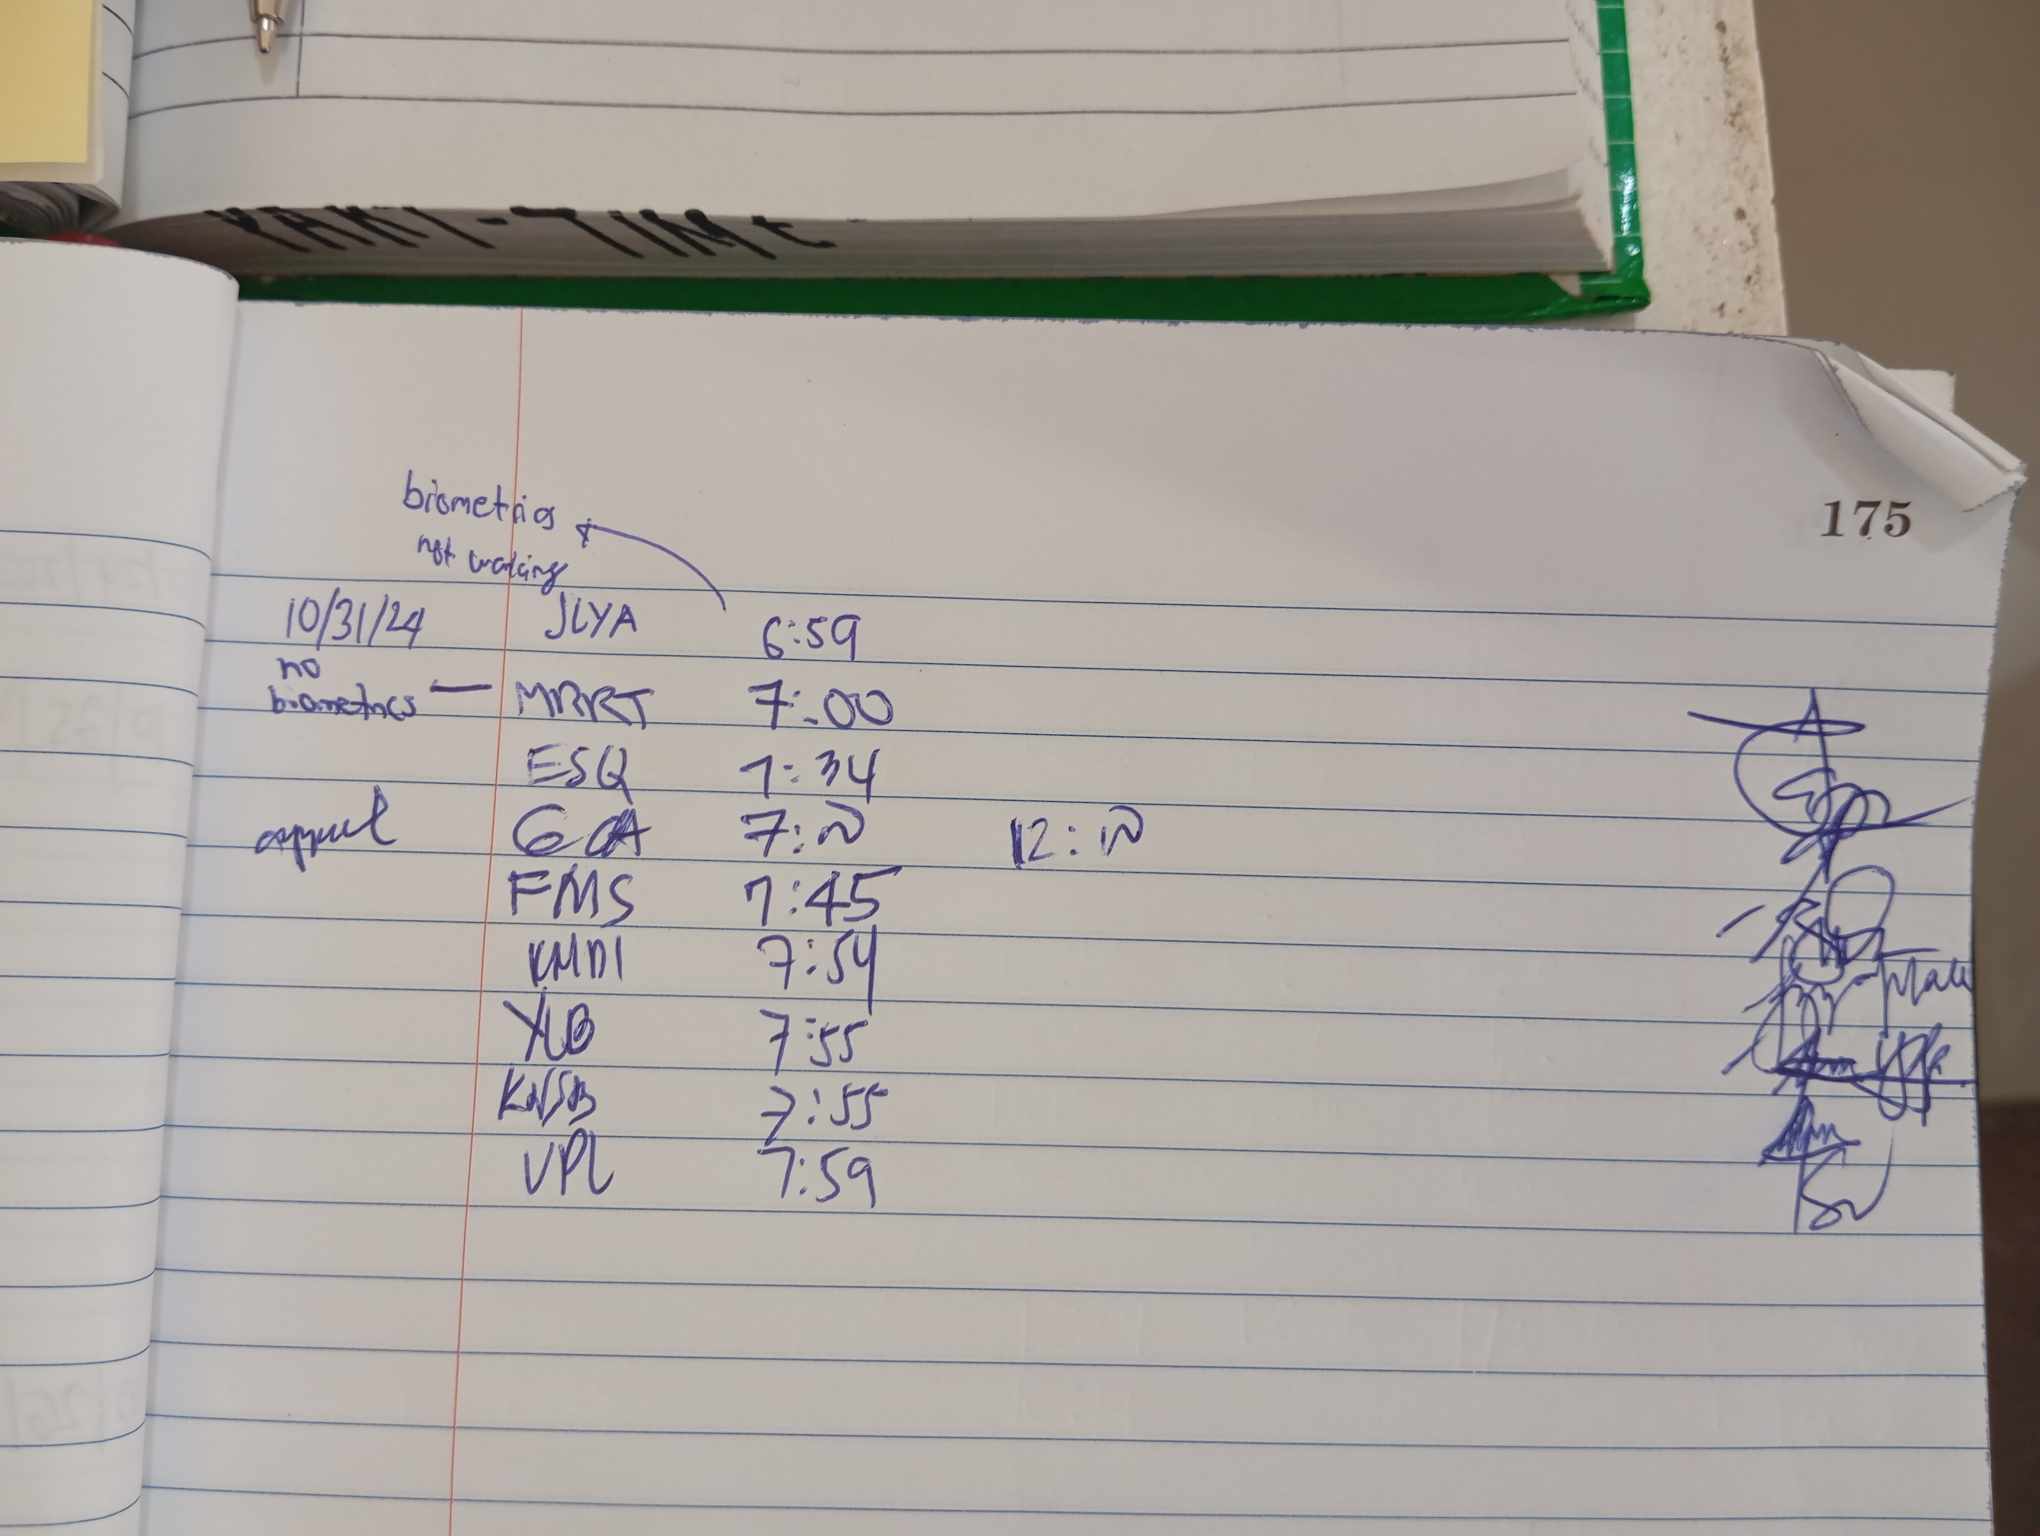 YAKI-TIME
175
biometrics
not working
10/31/24 JLYA 6:59
no
biometrics — MRRT 7:00
ESQ 7:34
GCA 7: 12:
FMS 7:45
KMDI 7:54
YLB 7:55
7:55
VPL 7:59